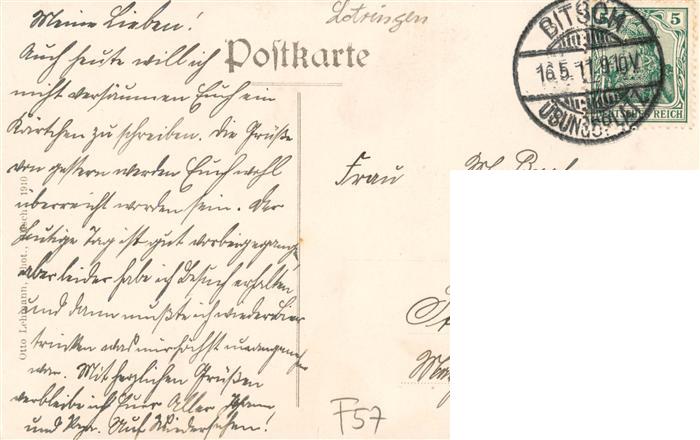 Meine Lieben!
Auch heute will ich
nicht versäumen Euch ein
Kärtchen zu schreiben. Die Grüße
von gestern werden Euch wohl
überreicht worden sein. Der
heutige Tag ist gut vorbeigegangen
aber leider habe ich Besuch erhalten
und dann mußte ich wieder Bier
trinken was mir höchst unangenehm
war. Mit herzlichen Grüßen
verbleibe ich Euer Aller
und Auf Wiedersehen!
Otto Lehmann, Phot., 1910
Lotringen
Postkarte
BITSCH
16.5.11.9-10V.
ÜBUNGSPL.
5
DEUTSCHES REICH
Frau
F57